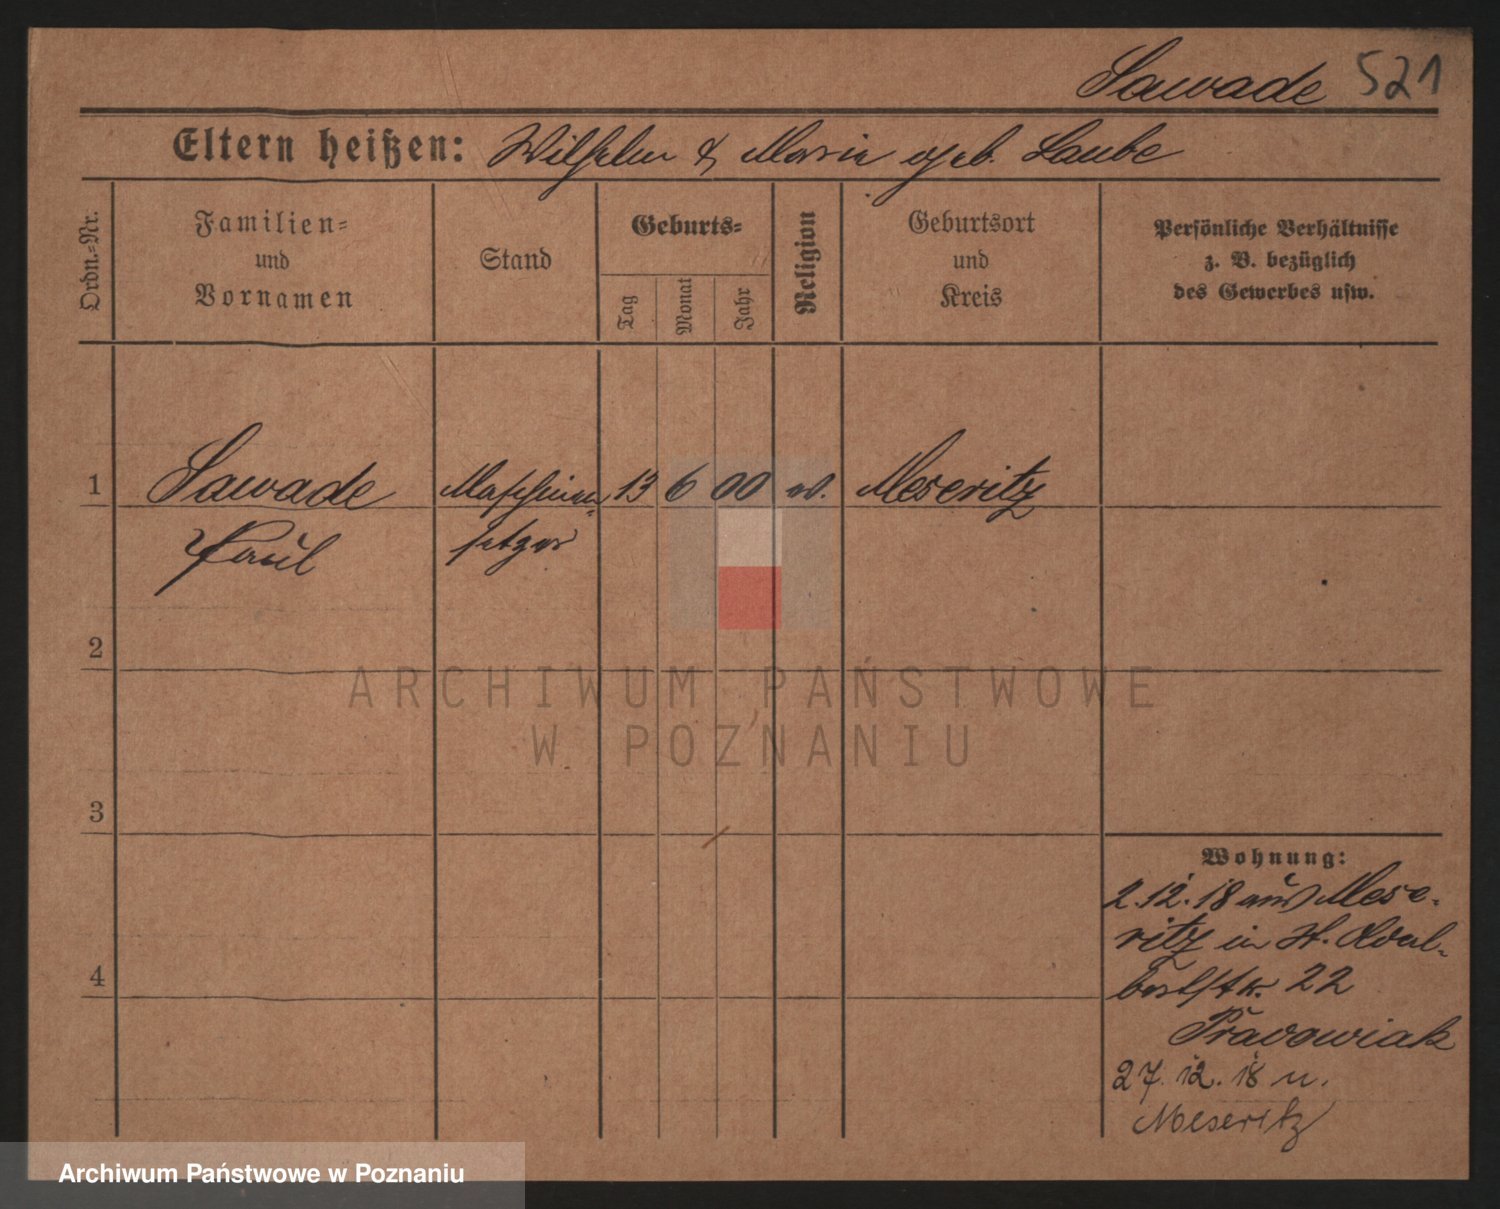 Sawade 521
Eltern heißen: Wilhelm & Marie geb. Laube
Ordn.-Nr.
Familien-
und
Vornamen
Stand
Geburts-
Tag
Monat
Jahr
Religion
Geburtsort
und
Kreis
Persönliche Verhältnisse
z. B. bezüglich
des Gewerbes usw.
1 Sawade Maschinen- 13 6 00 ev. Meseritz
Paul setzer
2
3
4
ARCHIWUM PAŃSTWOWE
W POZNANIU
Wohnung:
2.12.18 aus Mese-
ritz in St. Adal-
bertstr. 22
27.12.18 n.
Meseritz
Archiwum Państwowe w Poznaniu